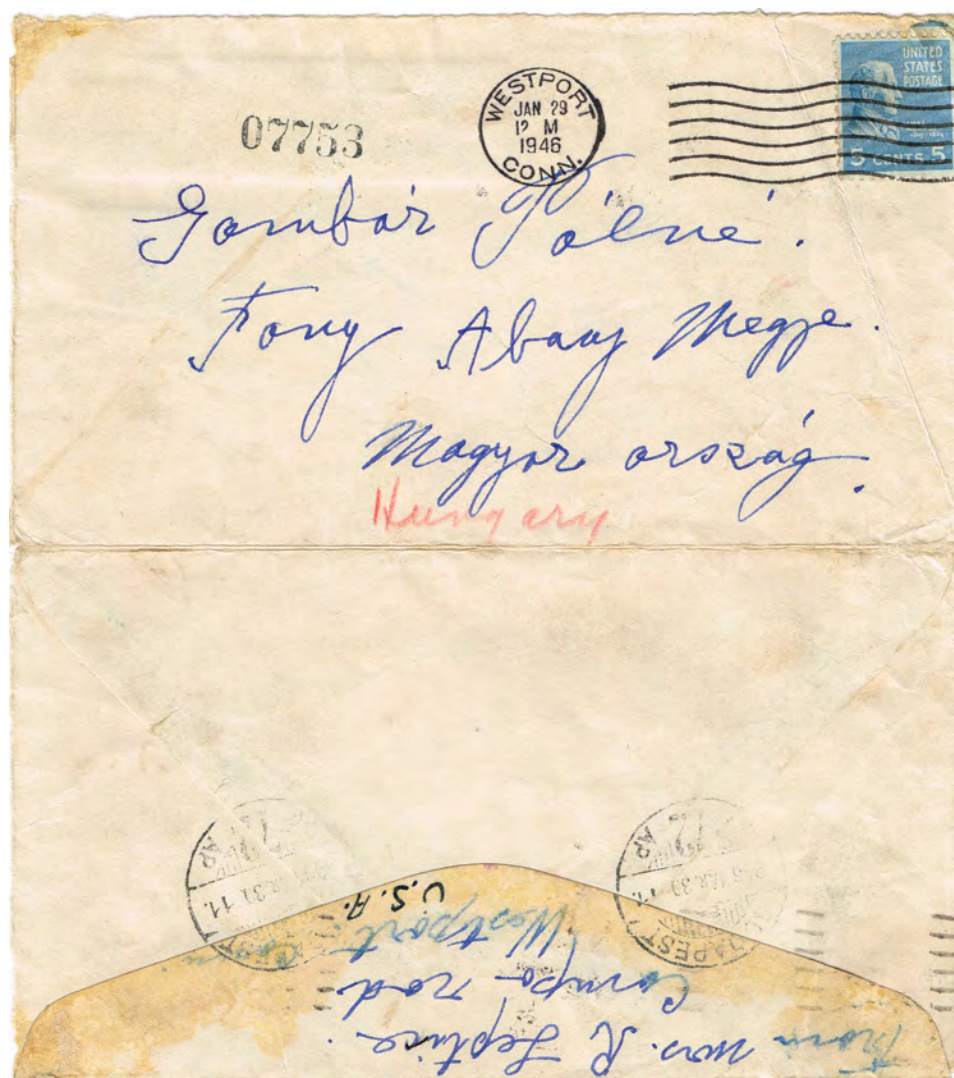 UNITED
STATES
POSTAGE
5 CENTS 5
WESTPORT
JAN 29
12 M
1946
CONN.
07753
Gombár Pálné.
Fony Abauj Megye.
Magyar ország.
Hungary
From Mrs. R
Compo rod
Westport Conn
U.S.A.